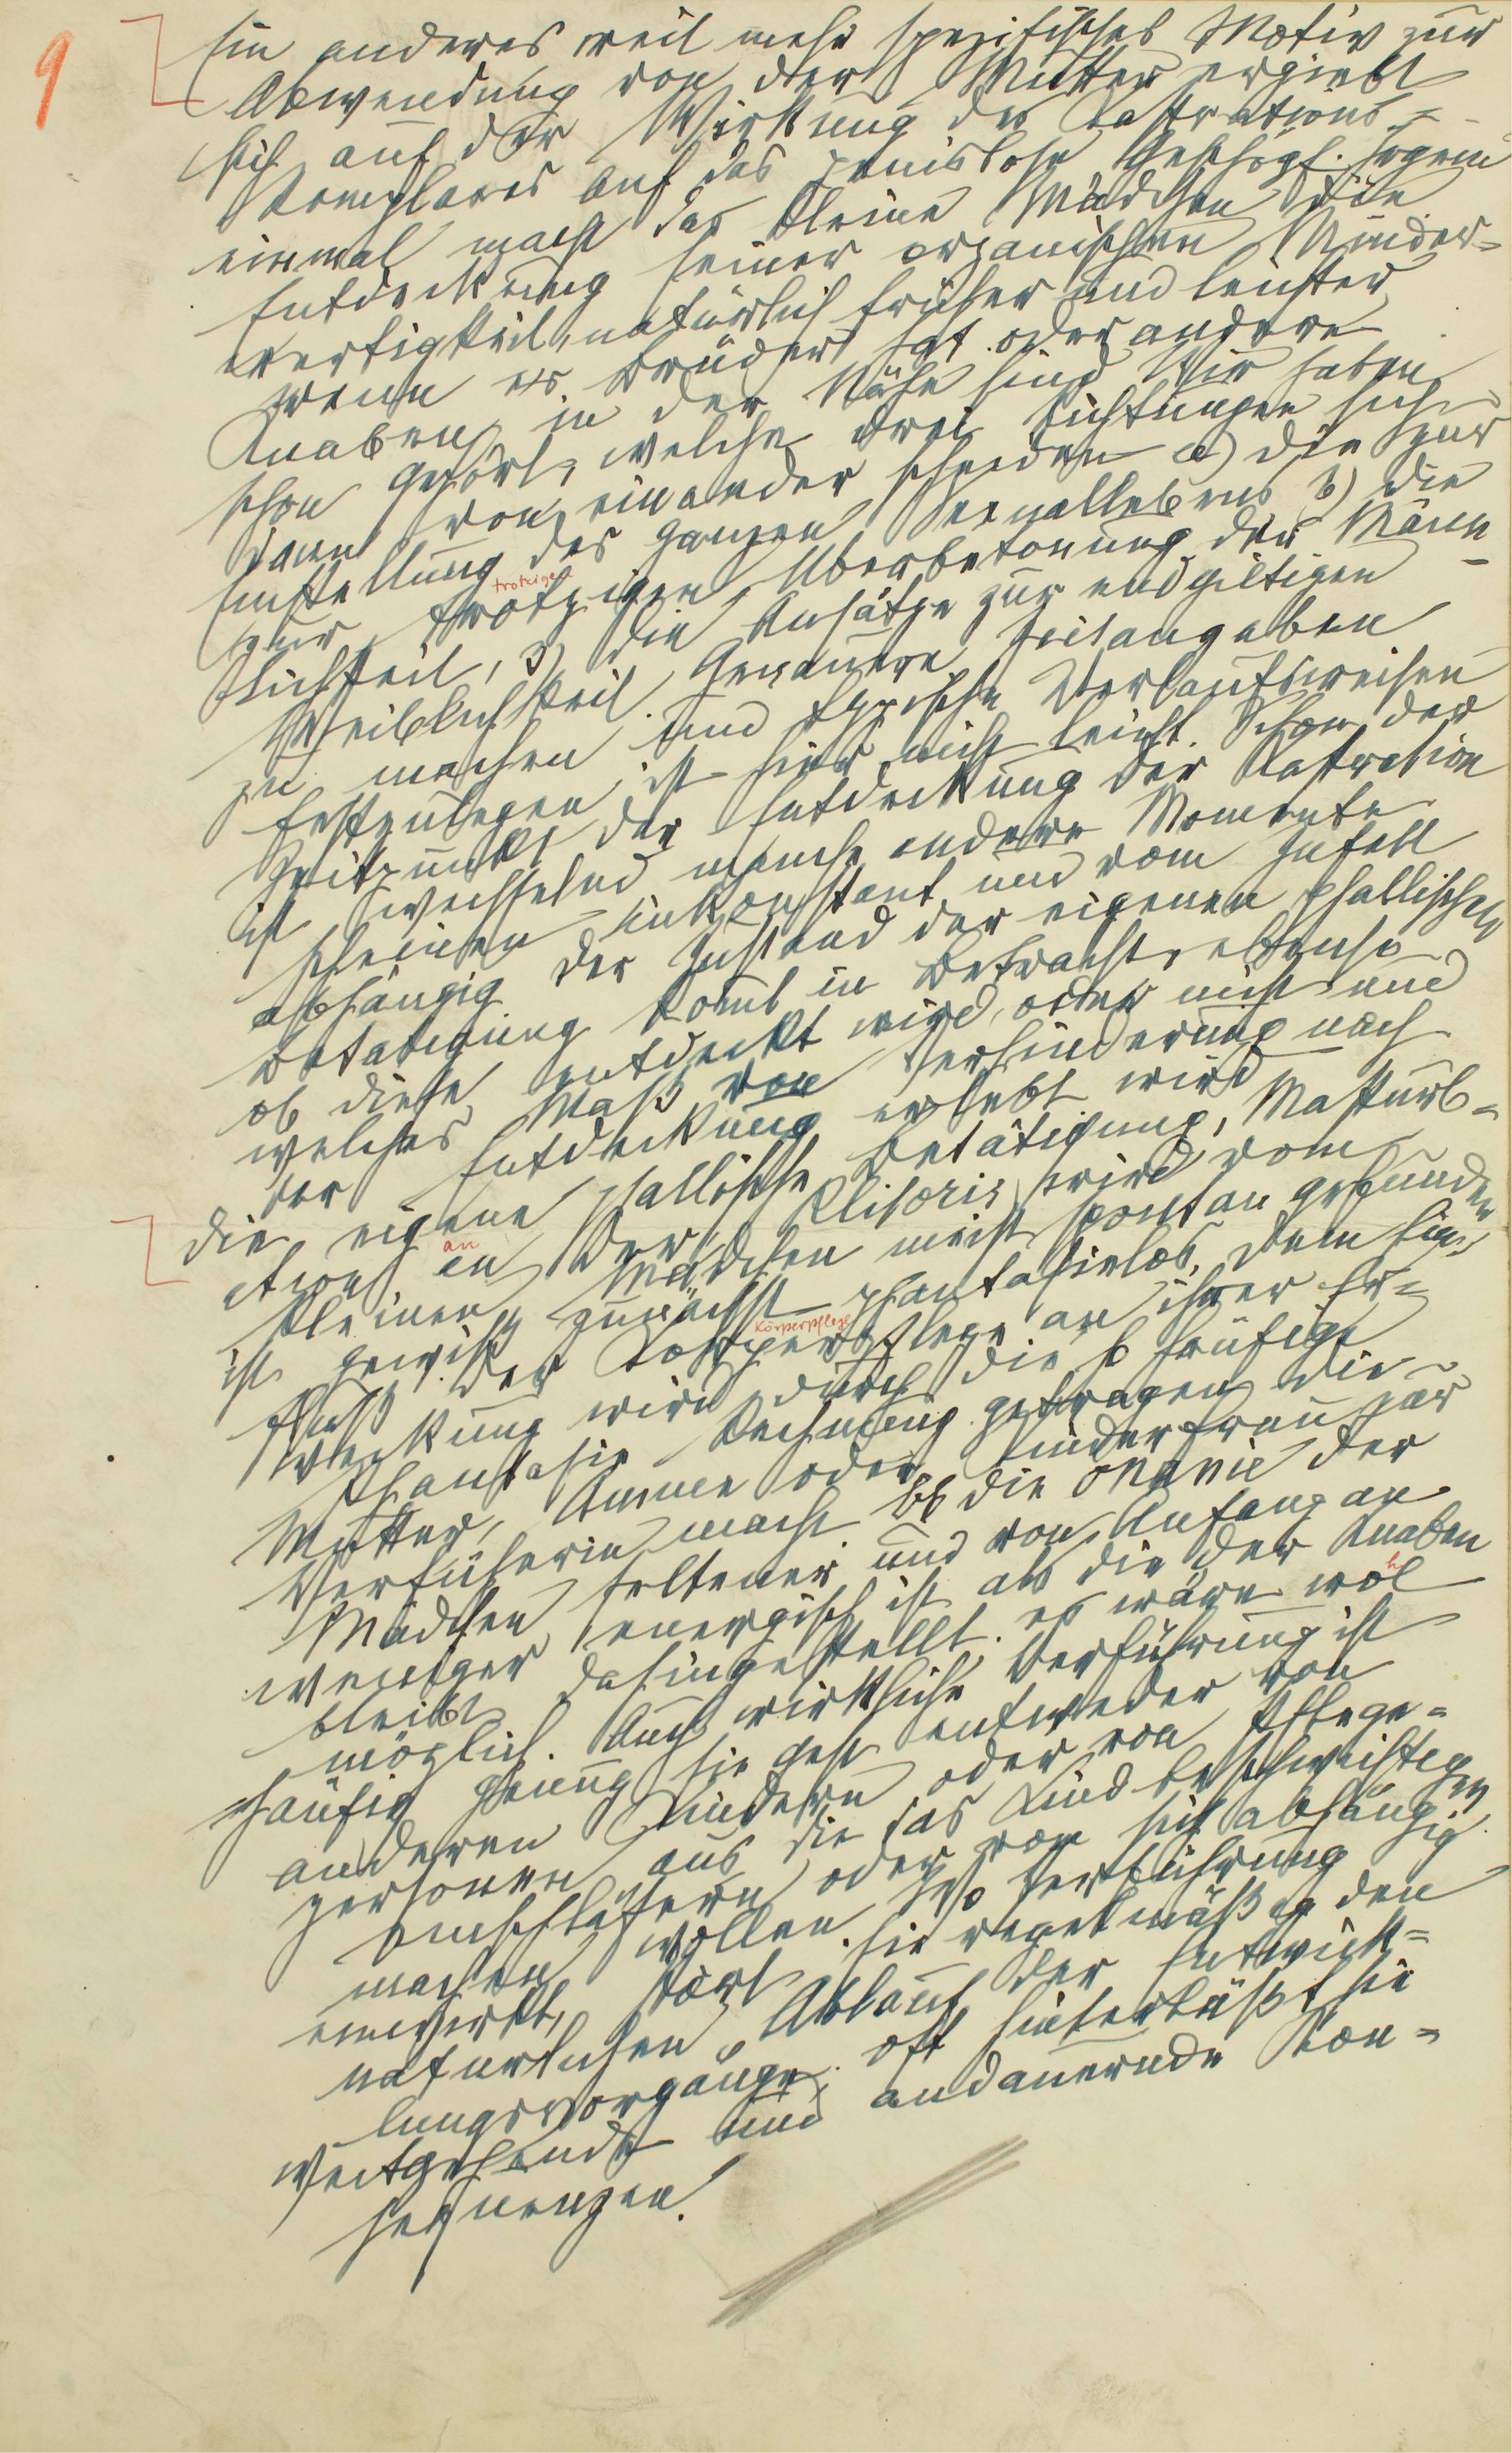 9
Ein anderes weit mehr spezifisches Motiv zur
Abwendung von der Mutter ergiebt
sich aus der Wirkung des Kastrations=
komplexes auf das penislose Geschöpf. Irgend
einmal macht das kleine Mädchen die
Entdeckung seiner organischen Minder=
wertigkeit, natürlich früher und leichter
wenn es Brüder hat oder andere
Knaben in der Nähe sind. Wir haben
schon gehört, welche drei Richtungen sich
dann von einander scheiden a) die zur
Einstellung des ganzen Sexuallebens b) die
trotzigen
zur trotzigen Überbetonung der Männ=
lichkeit, 3) die Ansätze zur endgiltigen
Weiblichkeit. Genauere Zeitangaben
zu machen und typische Verlaufsweisen
festzulegen ist hier nicht leicht. Schon der
Zeitpunkt der Entdeckung der Kastration
ist wechselnd, manche andere Momente
scheinen inkonstant und vom Zufall
abhängig. Der Zustand der eigenen phallischen
Betätigung komt in Betracht, ebenso
ob diese entdeckt wird, oder nicht und
welches Maß von Verhinderung nach
der Entdeckung erlebt wird
Die eigene phallische Betätigung, Masturb=
an
ation an der Klitoris wird vom
kleinen Mädchen meist spontan gefunden
ist gewiß zunächst phantasielos. Dem Ein=
Körperpflege
fluß der Körperpflege an ihrer Er=
weckung wird durch die so häufige
Phantasie Rechnung getragen die
Mutter, Amme oder Kinderfrau zur
Verführerin macht. Ob die Onanie der
Mädchen seltener und von Anfang an
weniger energisch ist als die der Knaben
h
bleibt dahingestellt. es wäre wol
möglich. Auch wirkliche Verführung ist
häufig genug, sie geht entweder von
anderen Kindern oder von Pflege=
personen aus die das Kind beschwichtigen
einschläfern oder von sich abhängig
machen wollen. Wo Verführung
einwirkt, stört sie regelmäßig den
natürlichen Ablauf der Entwick=
lungsvorgänge; oft hinterläßt sie
weitgehende und andauernde Kon=
sequenzen.